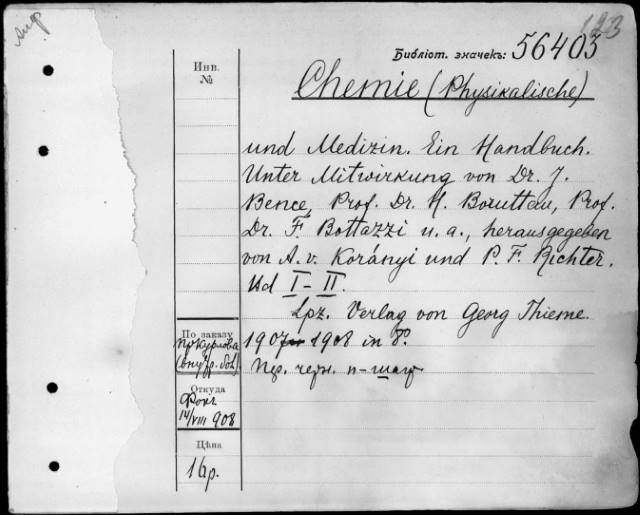 Анф
123
Библіот. значекъ: 56403
Инв.
№
Chemie (Physikalische)
und Medizin. Ein Handbuch.
Unter Mitwirkung von Dr. J.
Bence, Prof. Dr. H. Boruttau, Prof.
Dr. F. Bottazzi u. a., herausgegeben
von A. v. Korányi und P. F. Richter.
Bd I–II.
Lpz. Verlag von Georg Thieme.
1907–1908 in 8º.
По заказу
(внутр. бол.)
Откуда
Фокъ
14/VIII 908
Цѣна
16р.